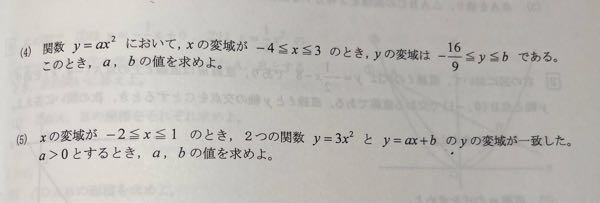 (4) 関数 y=ax² において，xの変域が −4≦x≦3 のとき，yの変域は −16/9≦y≦b である。
このとき，a，bの値を求めよ。
(5) xの変域が −2≦x≦1 のとき，2つの関数 y=3x² と y=ax+b のyの変域が一致した。
a>0とするとき，a，bの値を求めよ。